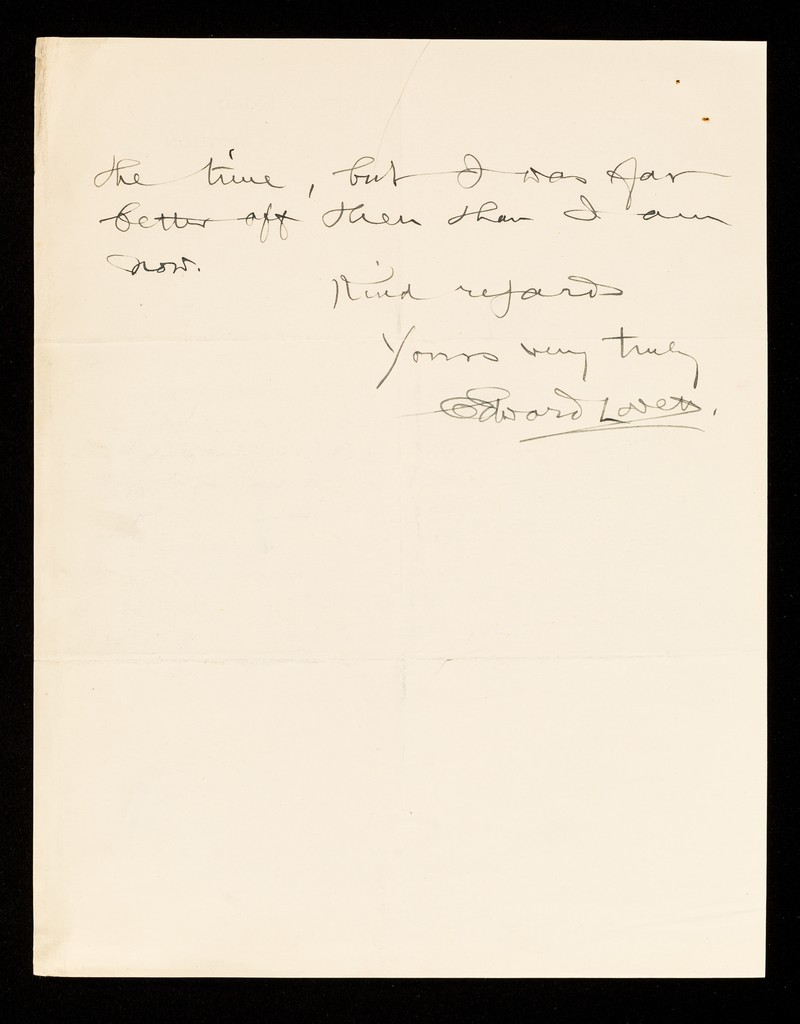 the time, but I was far
better off then than I am
now.
Kind regards
Yours very truly
Edward Lovett.